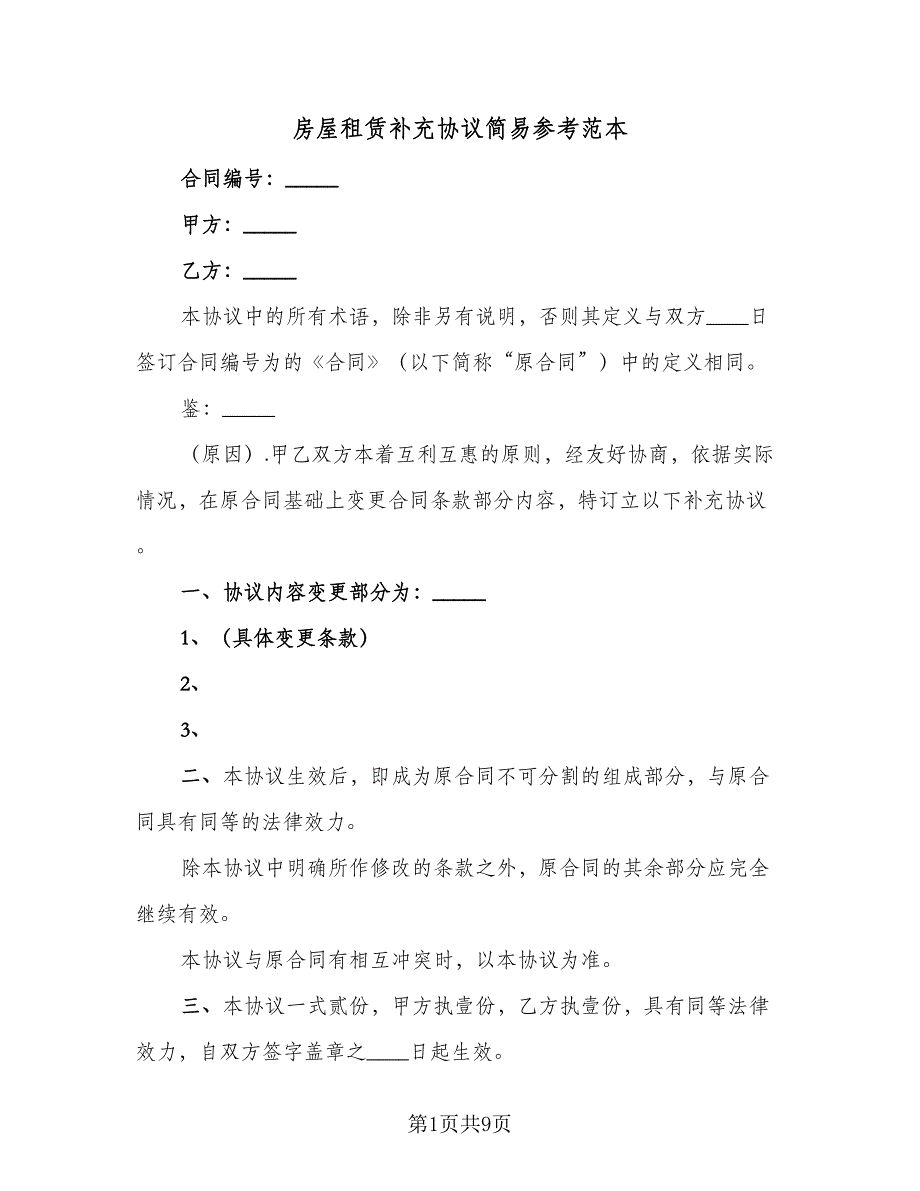 房屋租赁补充协议简易参考范本
合同编号：_____
甲方：_____
乙方：_____
本协议中的所有术语，除非另有说明，否则其定义与双方____日
签订合同编号为的《合同》（以下简称“原合同”）中的定义相同。
鉴：_____
（原因）.甲乙双方本着互利互惠的原则，经友好协商，依据实际
情况，在原合同基础上变更合同条款部分内容，特订立以下补充协议
。
一、协议内容变更部分为：_____
1、（具体变更条款）
2、
3、
二、本协议生效后，即成为原合同不可分割的组成部分，与原合
同具有同等的法律效力。
除本协议中明确所作修改的条款之外，原合同的其余部分应完全
继续有效。
本协议与原合同有相互冲突时，以本协议为准。
三、本协议一式贰份，甲方执壹份，乙方执壹份，具有同等法律
效力，自双方签字盖章之____日起生效。
第1页共9页